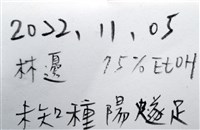 2022. 11. 05
林邊 75% EtOH
未知種陽燧足